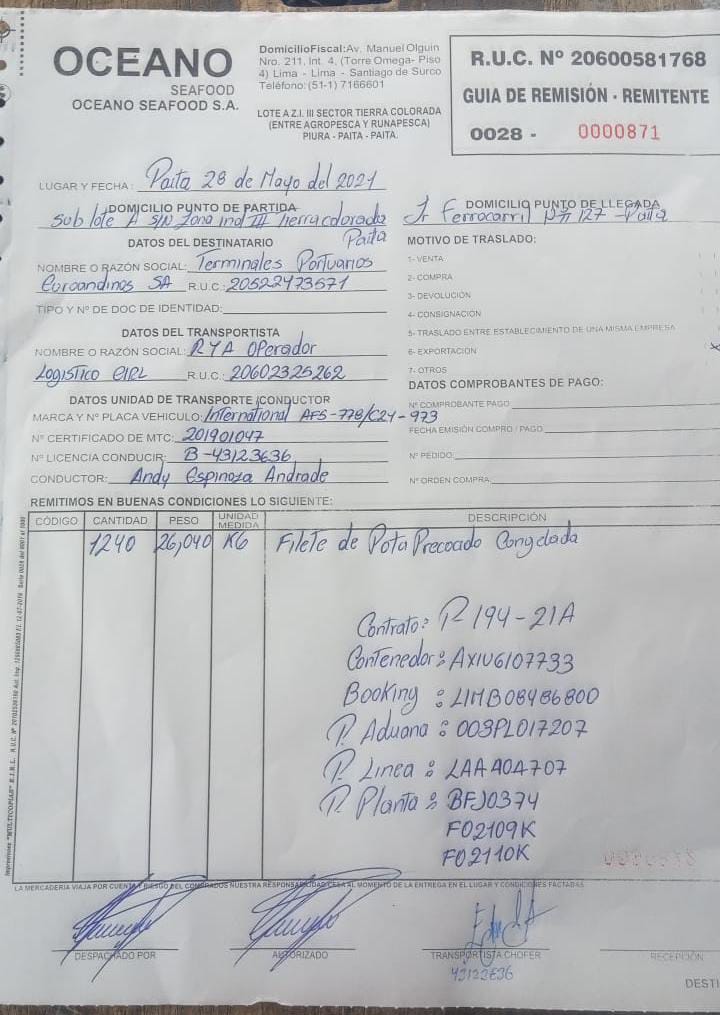 OCEANO
SEAFOOD
OCEANO SEAFOOD S.A.
Domicilio Fiscal: Av. Manuel Olguin
Nro. 211, Int. 4, (Torre Omega- Piso
4) Lima - Lima - Santiago de Surco
Teléfono:(51-1) 7166601
LOTE A Z.I. III SECTOR TIERRA COLORADA
(ENTRE AGROPESCA Y RUNAPESCA)
PIURA - PAITA - PAITA.
R.U.C. Nº 20600581768
GUIA DE REMISIÓN - REMITENTE
0028 - 0000871
LUGAR Y FECHA: Paita 28 de Mayo del 2021
DOMICILIO PUNTO DE PARTIDA
Sub lote A S/N Zona ind III tierra colorada
Paita
DOMICILIO PUNTO DE LLEGADA
Jr Ferrocarril Nº 127 - Paita
DATOS DEL DESTINATARIO
NOMBRE O RAZÓN SOCIAL: Terminales Portuarios
Euroandinos SA R.U.C.: 20522473571
TIPO Y Nº DE DOC DE IDENTIDAD:
MOTIVO DE TRASLADO:
1- VENTA
2- COMPRA
3- DEVOLUCIÓN
4- CONSIGNACIÓN
5- TRASLADO ENTRE ESTABLECIMIENTO DE UNA MISMA EMPRESA
6- EXPORTACION
7- OTROS
DATOS DEL TRANSPORTISTA
NOMBRE O RAZÓN SOCIAL: RYA Operador
Logistico EIRL R.U.C.: 20602325262
DATOS UNIDAD DE TRANSPORTE /CONDUCTOR
MARCA Y Nº PLACA VEHICULO: International AFS-778/C2Y-973
Nº CERTIFICADO DE MTC: 201901047
Nº LICENCIA CONDUCIR: B-43123636
CONDUCTOR: Andy Espinoza Andrade
DATOS COMPROBANTES DE PAGO:
Nº COMPROBANTE PAGO
FECHA EMISIÓN COMPRO / PAGO
Nº PEDIDO:
Nº ORDEN COMPRA:
REMITIMOS EN BUENAS CONDICIONES LO SIGUIENTE:
CÓDIGO CANTIDAD PESO UNIDAD MEDIDA DESCRIPCIÓN
1240 26,040 KG Filete de Pota Precocido Congelada
Contrato: P 194-21A
Contenedor: AXIU6107733
Booking : LIMB08486800
P. Aduana : 003PL017207
P. Linea : LAA A0A707
P. Planta : BFJ0374
F02109K
F02110K
LA MERCADERIA VIAJA POR CUENTA Y RIESGO DEL COMPRADOS NUESTRA RESPONSABILIDAD CESA AL MOMENTO DE LA ENTREGA EN EL LUGAR Y CONDICIONES FACTADAS
DESPACHADO POR
AUTORIZADO
TRANSPORTISTA CHOFER
RECEPCIÓN
DESTI